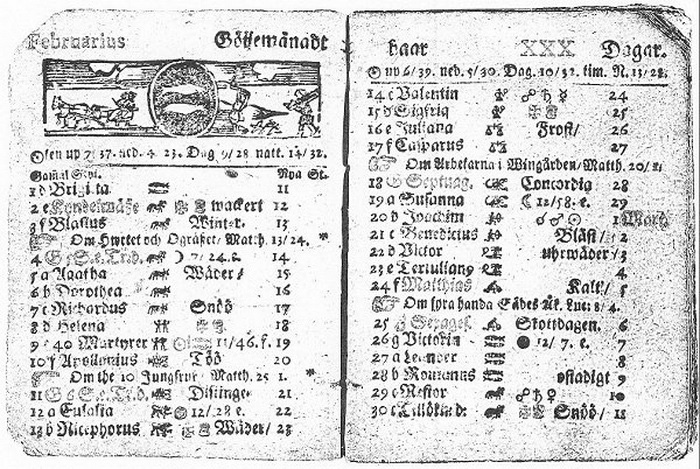 Februarius Göijemånadt
Solen up 7/37. ned. 4 23. Dag 9/28 natt. 14/32.
Gamal Styl. Nya St.
1 d Brigitta 11
2 e Kyndelmässe wackert 12
3 f Blasius Winter. 13
Om Hwetet och Ogräset/ Matth. 13/24. *
4 G 5. e. Tr. d. 7/24. 14
5 a Agatha Wäder/ 15
6 b Dorothea 16
7 c Richardus Snöö 17
8 d Helena 18
9 e 40 Martyrer 11/46. f. 19
10 f Apollonius Töö 20
Om the 10 Jungfrur Matth. 25 1. *
11 G 6 S. e. Tr. d. Distinge. 21
12 a Eulalia 12/28 e. 22
13 b Nicephorus Wäder/ 23
haar XXX Dagar.
☉ up 6/39. ned. 5/30. Dag. 10/32. tim. N. 13/28.
14 c Valentin ☍ ♄ ☿ 24
15 d Sigfrid 25
16 e Juliana Frost/ 26
17 f Casparus 27
Om Arbetarna i Wingården/ Matth. 20/1.
18 G Septuag. Concordia 28
19 a Susanna ☾ 12/58. e. 29
20 b Joachim ☌ ♂ ☉ 1 Mart.
21 c Benedictus Blåst/ 2
22 d Victor uhrwäder/ 3
23 e Tertuliany 4
24 f Matthias Kalt/ 5
Om fyra handa Sädes åk. Luc. 8/4.
25 g Sexages. Skottdagen. 6
26 g Victorin ● 12/7. e. 7
27 a Leander 8
28 b Romanus ostadigt 9
29 c Nestor ☍ ♄ ♀ 10
30 c Tillökind: Snöö/ 11